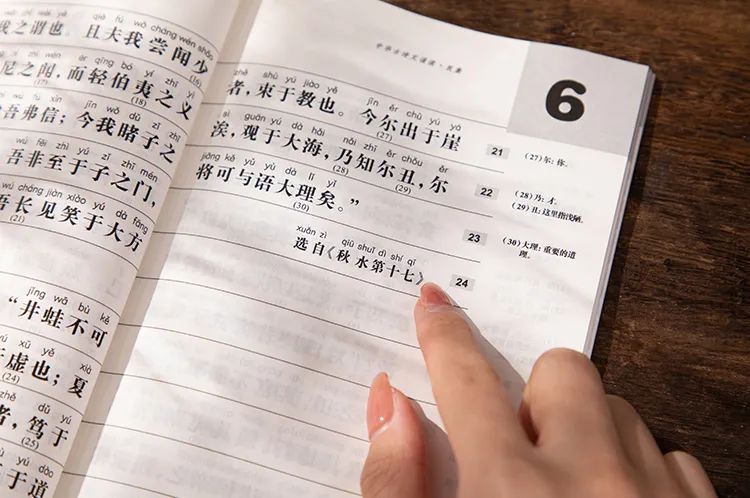 wǒ zhī wèi yě qiě fū wǒ cháng wén shǎo
我之谓也。且夫我尝闻少
(16)
ní zhī wén ér qīng bó yí zhī yì
尼之闻，而轻伯夷之义
(17) (18)
wú fú xìn jīn wǒ dǔ zǐ zhī
吾弗信；今我睹子之
wú fēi zhì yú zǐ zhī mén
吾非至于子之门，
wú cháng jiàn xiào yú dà fāng
吾长见笑于大方
(21)
jǐng wā bù kě
“井蛙不可
yú xū yě xià
于虚也；夏
(24)
zhě dǔ yú
者，笃于
(25)
yú dào
于道
中华古诗文诵读
6
zhě shù yú jiào yě jīn ěr chū yú yá
者，束于教也。今尔出于崖
(27)
21
sì guān yú dà hǎi nǎi zhī ěr chǒu ěr
涘，观于大海，乃知尔丑，尔
(28) (29)
22
jiāng kě yǔ yǔ dà lǐ yǐ
将可与语大理矣。”
(30)
23
xuǎn zì qiū shuǐ dì shí qī
选自《秋水第十七》
24
(27)尔：你。
(28)乃：才。
(29)丑：这里指浅陋。
(30)大理：重要的道
理。